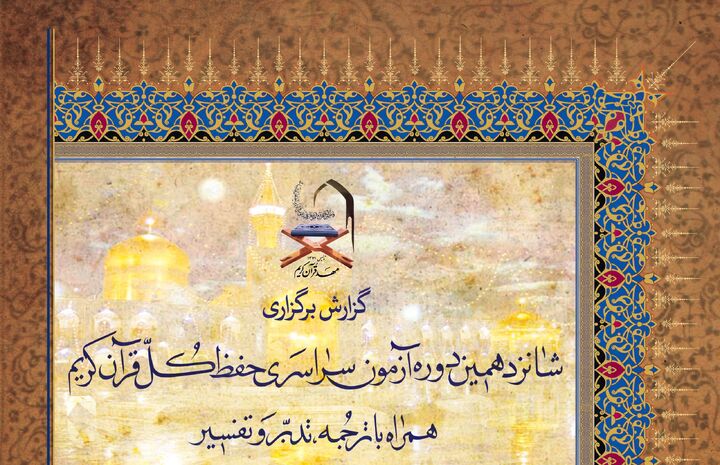 مهد قرآن کریم
گزارش برگزاری
شانزدهمین دوره آزمون سراسری حفظ کُلّ قرآن کریم
همراه با ترجُمه، تدبّر وَ تفسیر